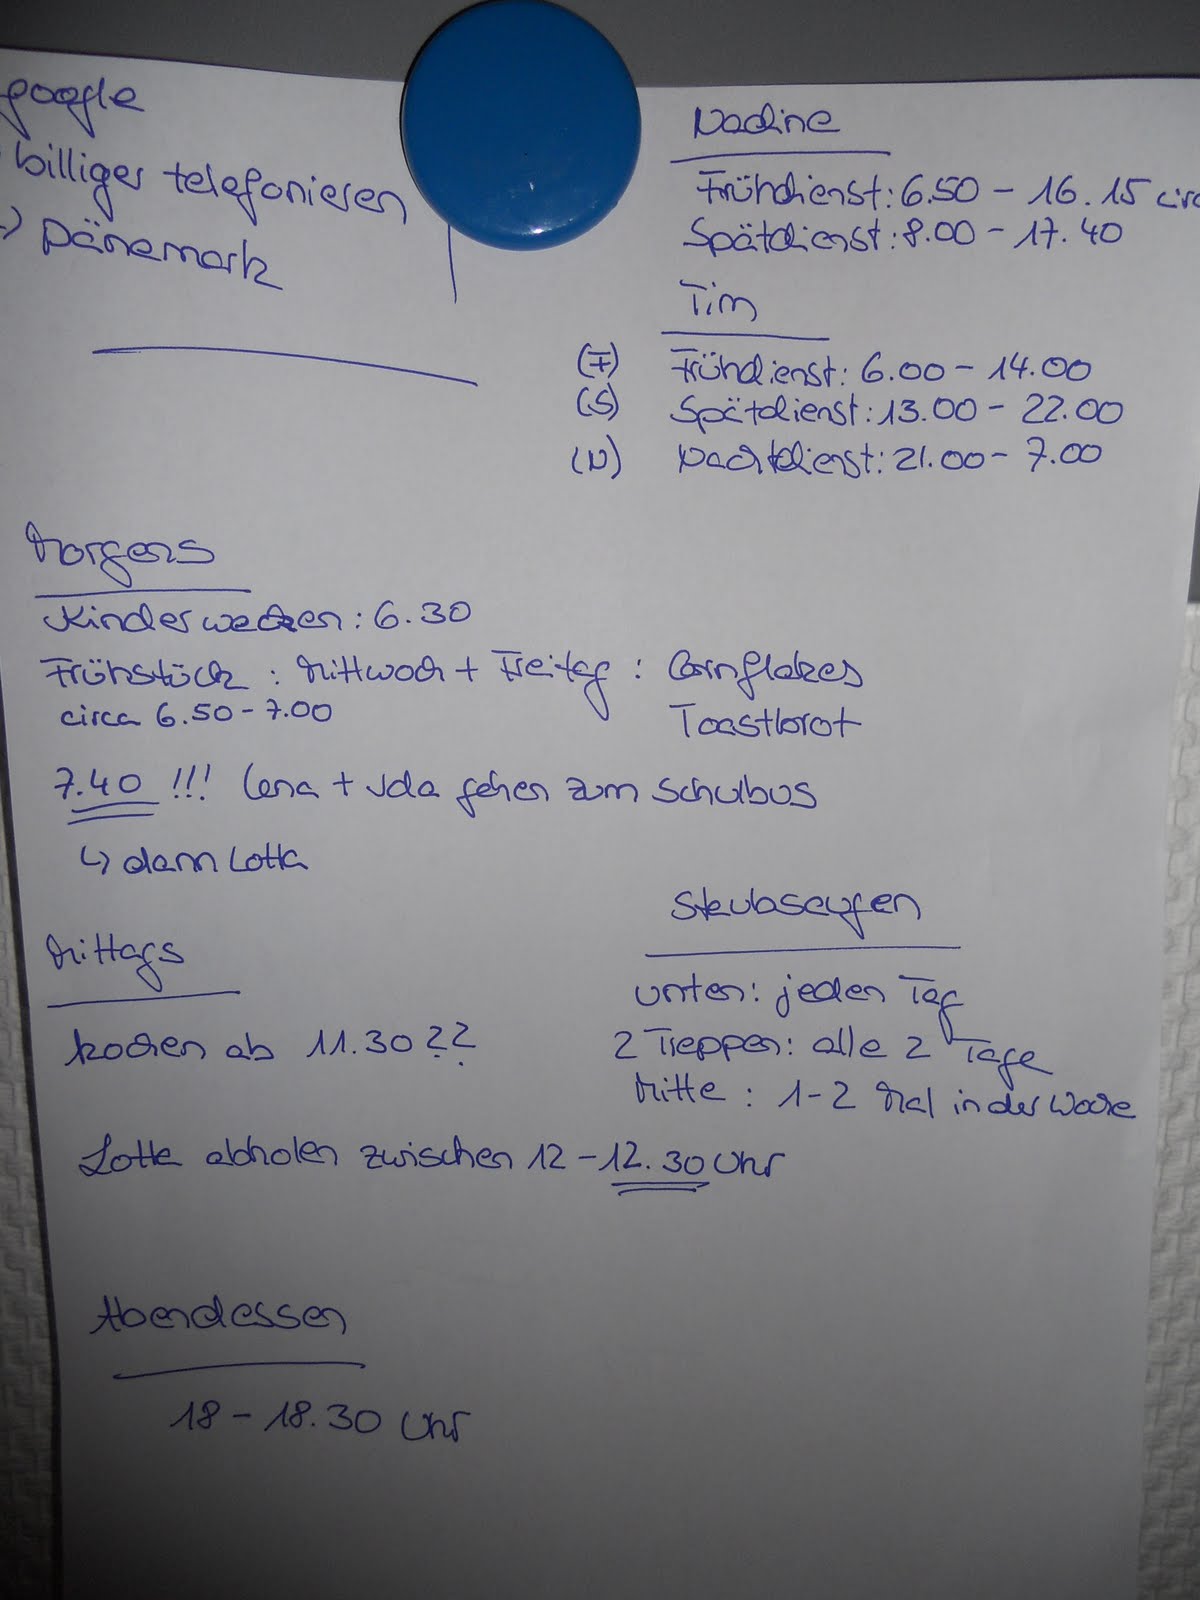 google
billiger telefonieren
Dänemark
Nadine
Frühdienst: 6.50 - 16.15 circ
Spätdienst: 8.00 - 17.40
Tim
(F) Frühdienst: 6.00 - 14.00
(S) Spätdienst: 13.00 - 22.00
(N) Nachtdienst: 21.00 - 7.00
Morgens
Kinder wecken: 6.30
Frühstück : Mittwoch + Freitag : Cornflakes
circa 6.50 - 7.00 Toastbrot
7.40 !!! Lena + Ida gehen zum Schulbus
↳ dann Lotta
Mittags
kochen ab 11.30 ??
Lotta abholen zwischen 12 - 12.30 Uhr
Staubsaugen
unten: jeden Tag
2 Treppen: alle 2 Tage
Mitte : 1-2 Mal in der Woche
Abendessen
18 - 18.30 Uhr